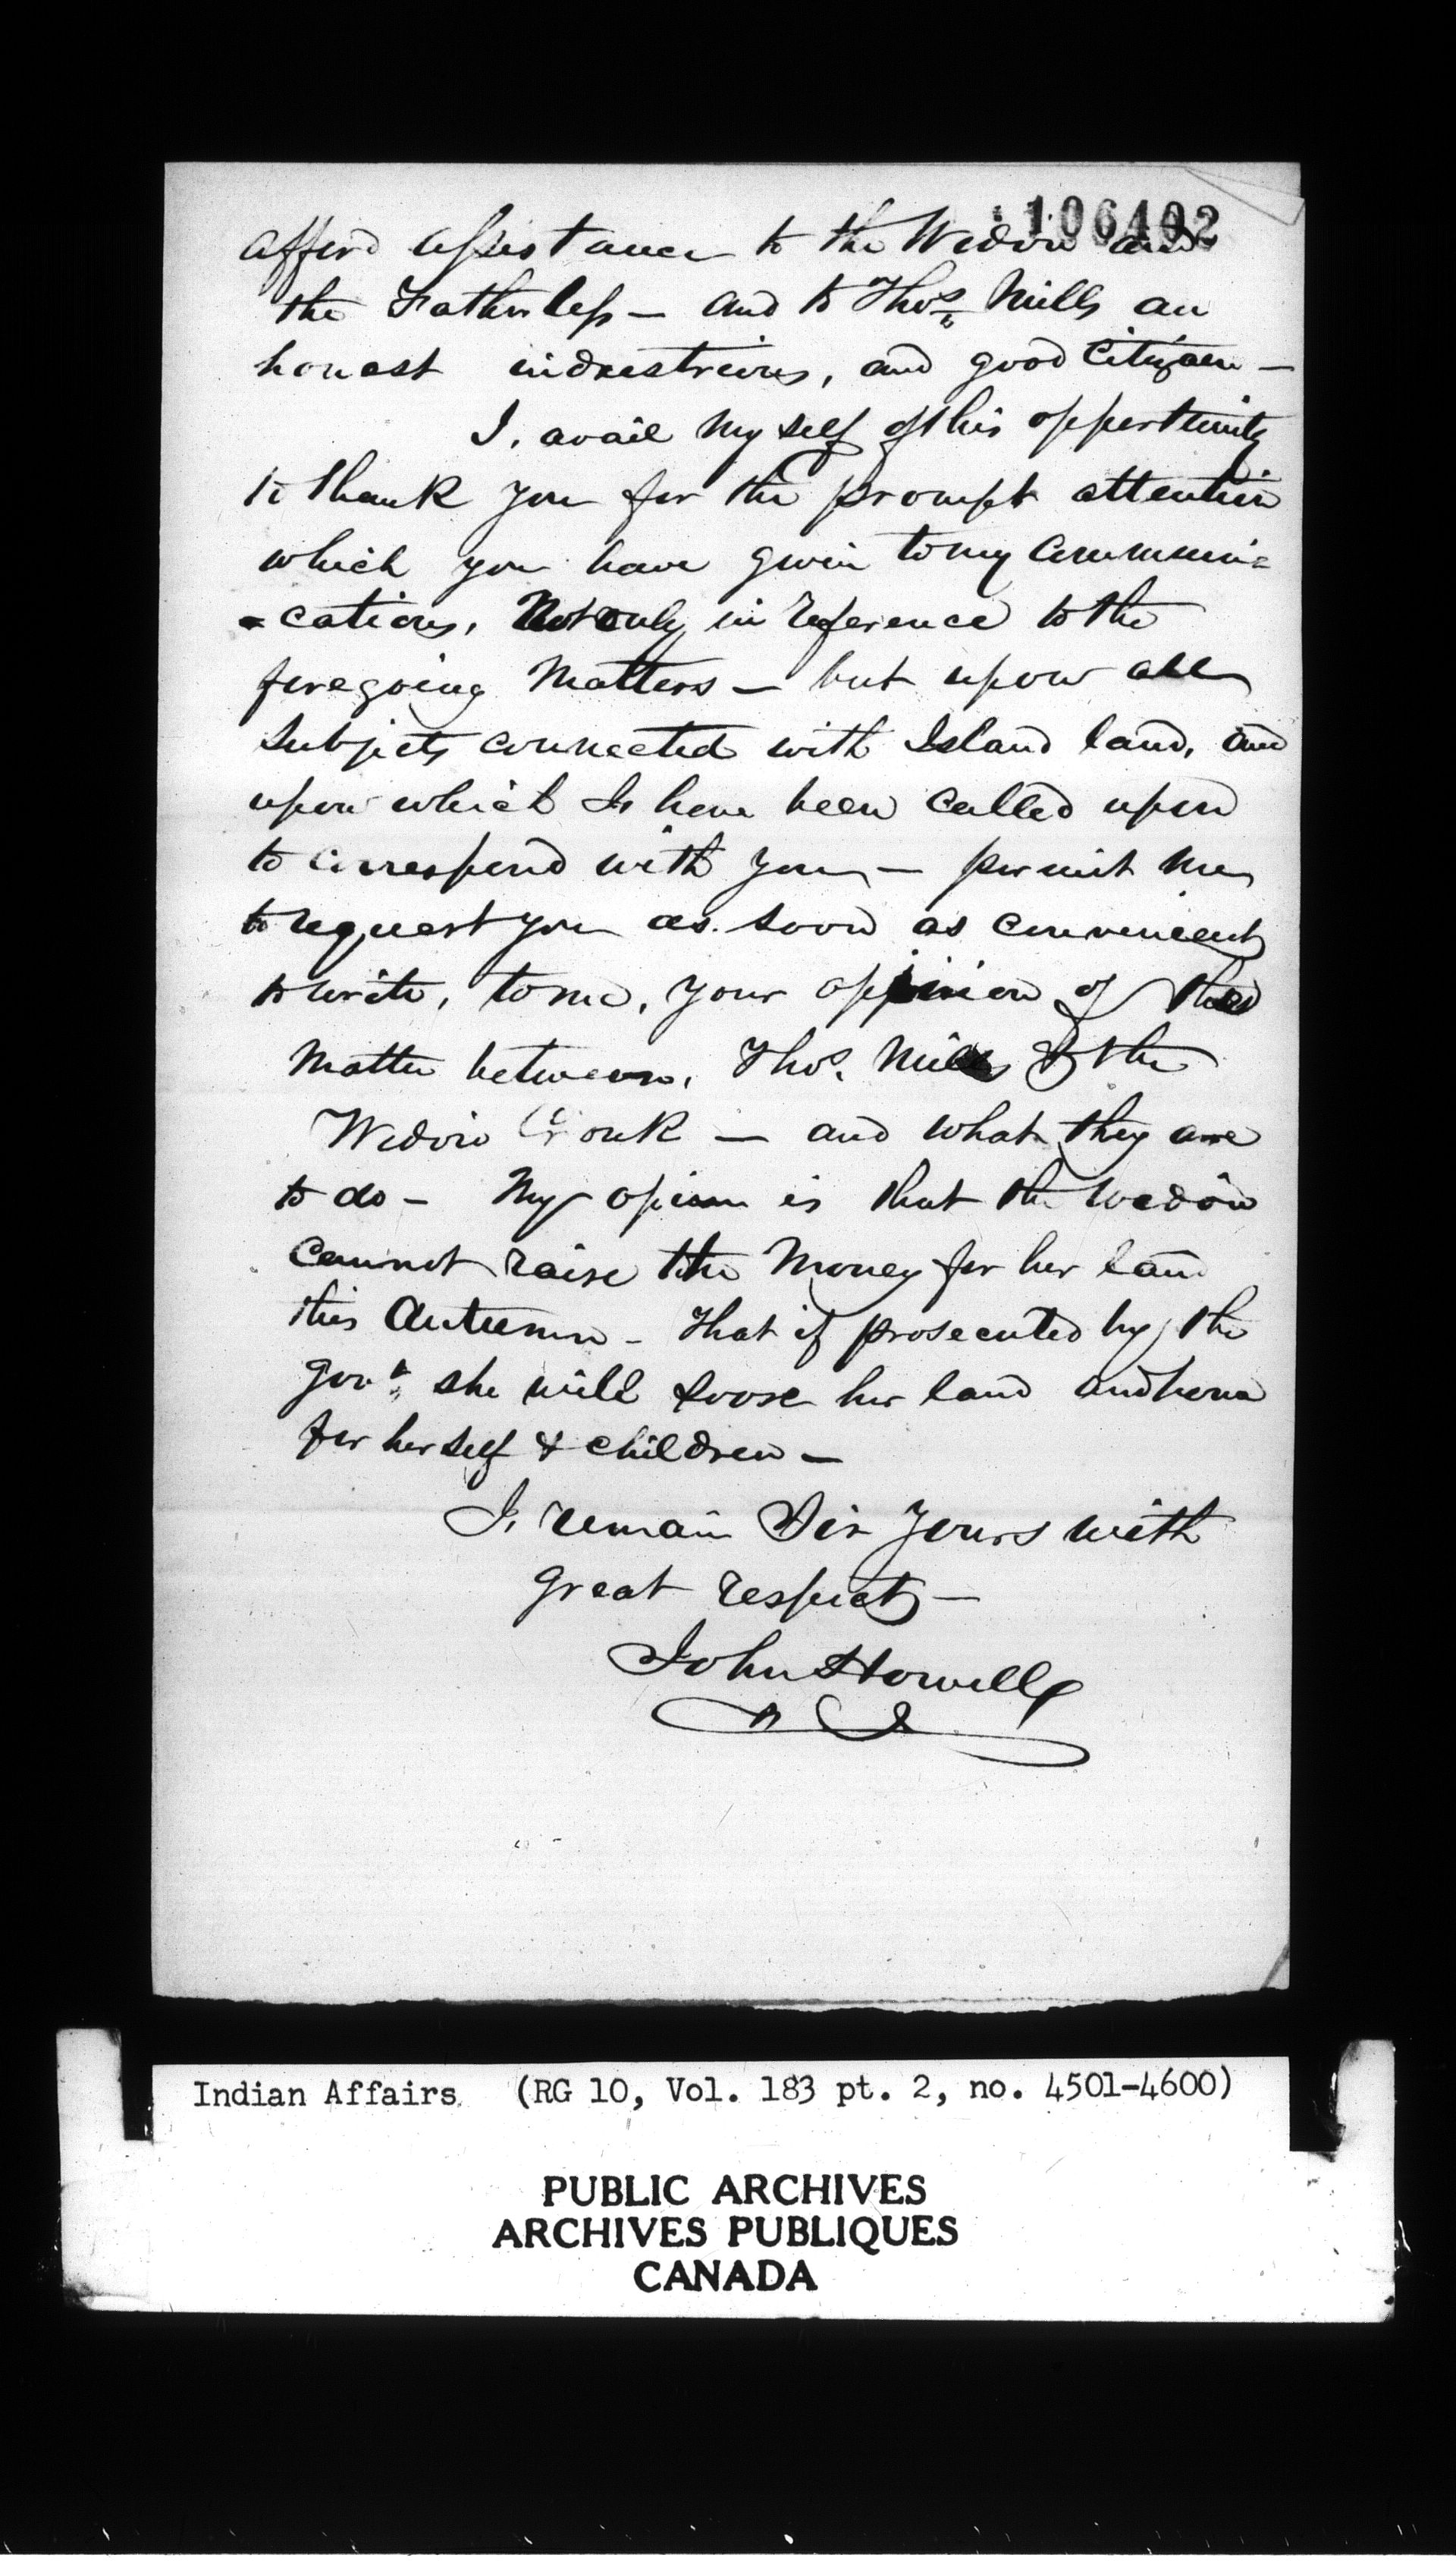 106402
afford assistance to the Widow and
the Fatherless — and to Thos. Mills an
honest industrious, and good Citizen —
I, avail My self of this opportunity
to thank you for the prompt attention
which you have given to my Communi=
=cations, Not only in reference to the
foregoing Matters — but upon all
Subjects connected with Island land, and
upon which I have been Called upon
to correspond with you — permit me
to request you as soon as convenient
to write, to me, your oppinion of the
Matter between, Thos. Mills & the
Widow Cronk — and what they are
to do — My opinion is that the Widow
Cannot raise the Money for her land
this Autumn — That if prosecuted by the
Govt. she will loose her land and home
for herself & children —
I, remain Sir Yours with
great respect —
John Howell
Indian Affairs (RG 10, Vol. 183 pt. 2, no. 4501-4600)
PUBLIC ARCHIVES
ARCHIVES PUBLIQUES
CANADA